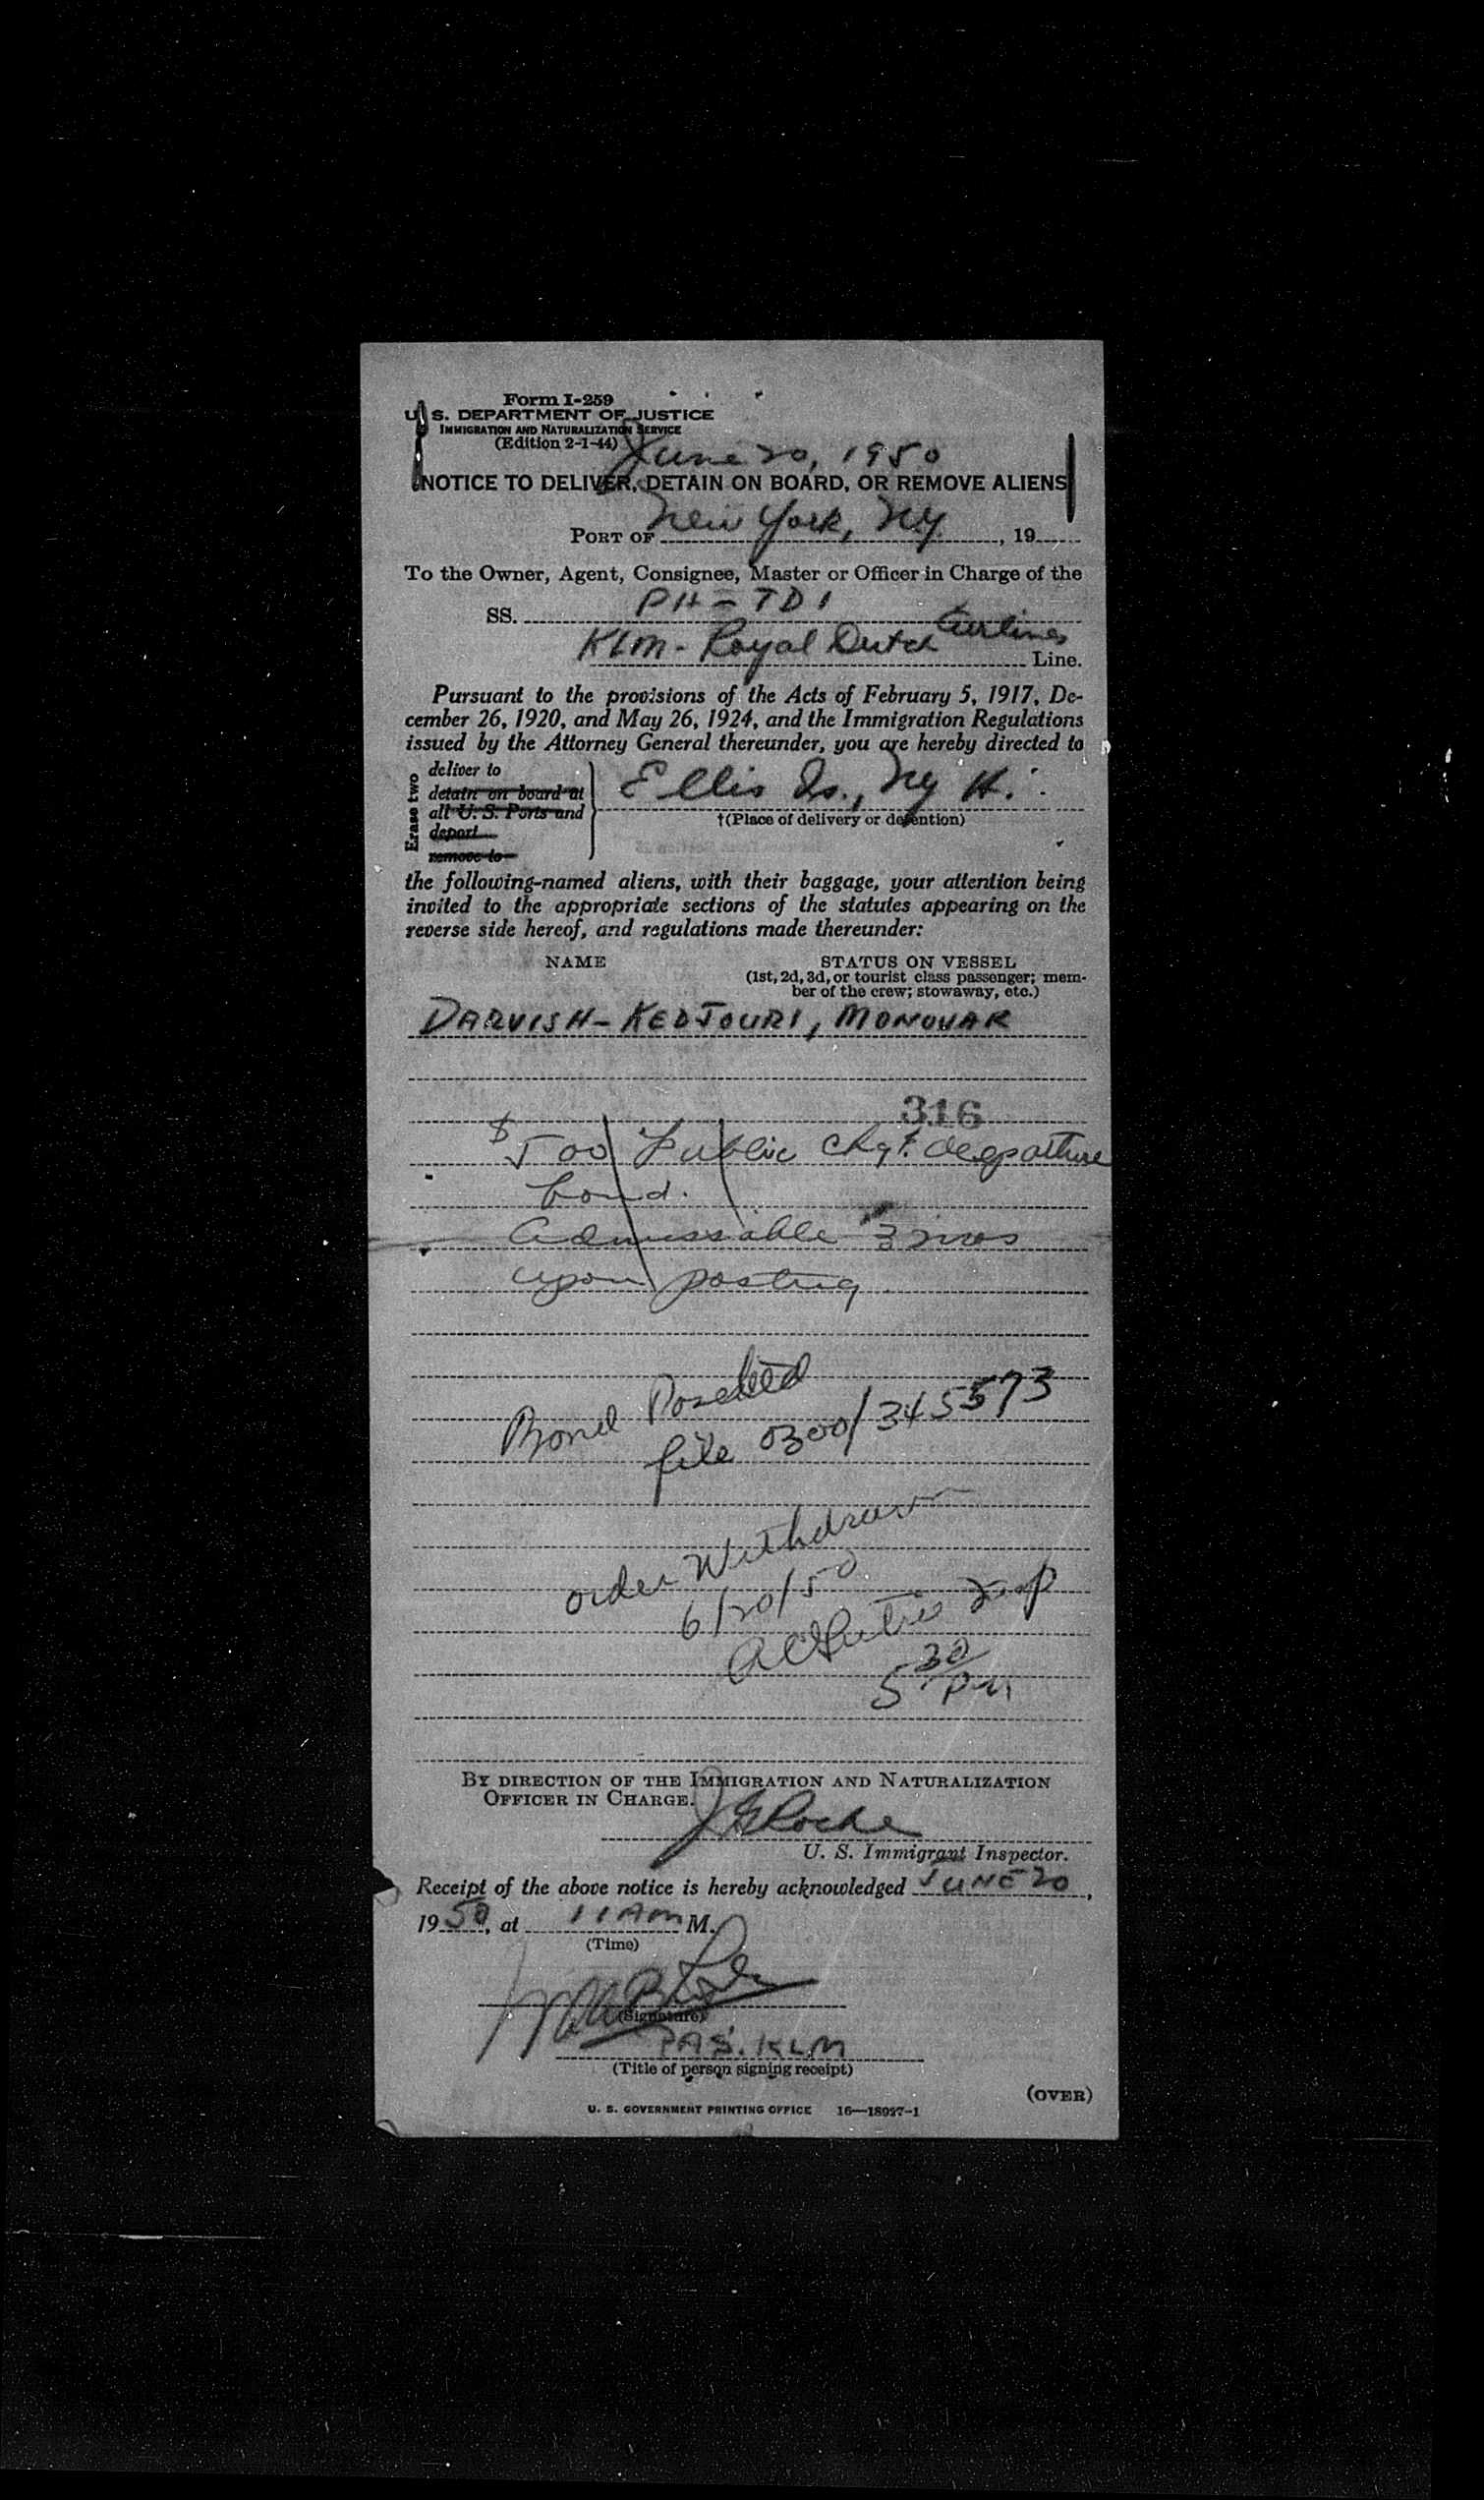 Form I-259
U. S. DEPARTMENT OF JUSTICE
IMMIGRATION AND NATURALIZATION SERVICE
(Edition 2-1-44)
June 20, 1950
NOTICE TO DELIVER, DETAIN ON BOARD, OR REMOVE ALIENS
PORT OF New York, NY., 19
To the Owner, Agent, Consignee, Master or Officer in Charge of the
SS. PH-TDI
KLM - Royal Dutch Airlines Line.
Pursuant to the provisions of the Acts of February 5, 1917, De-
cember 26, 1920, and May 26, 1924, and the Immigration Regulations
issued by the Attorney General thereunder, you are hereby directed to
Erase two
deliver to
detain on board at
all U. S. Ports and
deport
remove to
Ellis Is., NY H.
†(Place of delivery or detention)
the following-named aliens, with their baggage, your attention being
invited to the appropriate sections of the statutes appearing on the
reverse side hereof, and regulations made thereunder:
NAME STATUS ON VESSEL
(1st, 2d, 3d, or tourist class passenger; mem-
ber of the crew; stowaway, etc.)
DARVISH-KEDJOURI, MONOUAR
316
$500 Public chg & departure
bond.
Admissable 3 mos
upon posting
Bond Posted
file 0300/345573
order Withdrawn
6/20/50
5 30 PM
BY DIRECTION OF THE IMMIGRATION AND NATURALIZATION
OFFICER IN CHARGE.
J Roche
U. S. Immigrant Inspector.
Receipt of the above notice is hereby acknowledged JUNE 20,
1950, at 11 AM M.
(Time)
(Signature)
PAS. KLM
(Title of person signing receipt)
(OVER)
U. S. GOVERNMENT PRINTING OFFICE 16—18927-1